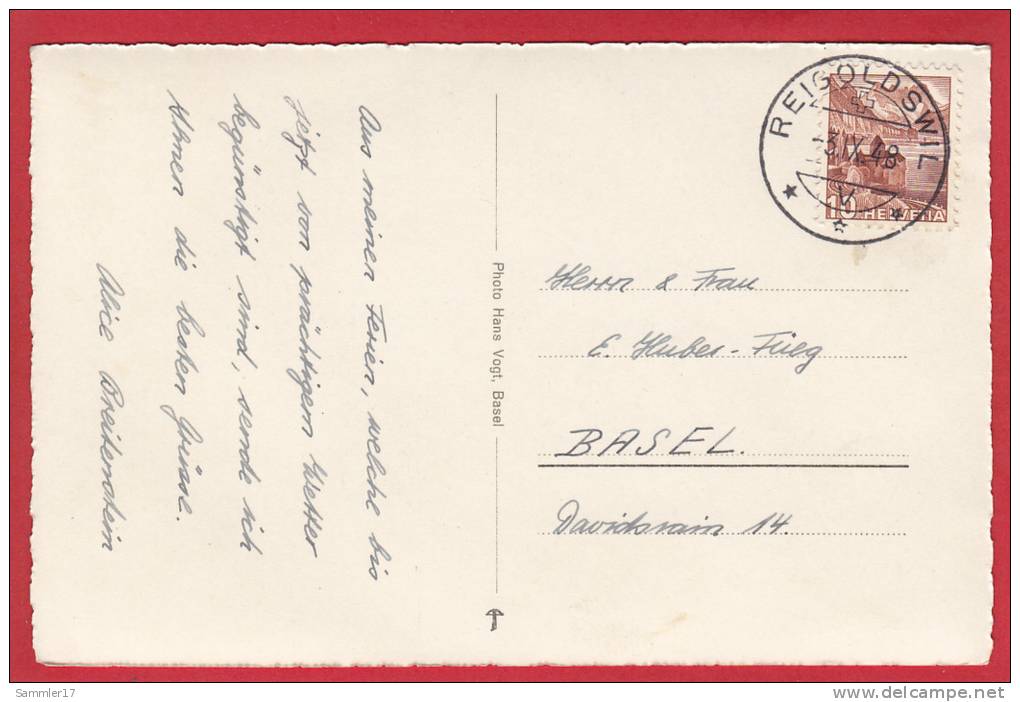 Aus meinen Ferien, welche bis
jetzt von prächtigem Wetter
begünstigt sind, sende ich
Ihnen die besten Grüsse.
Alice Breitenstein
Photo Hans Vogt, Basel
REIGOLDSWIL
-3.IX.48
V
10 HELVETIA
Herrn & Frau
E. Huber-Füeg
BASEL.
Davidsrain 14.
Sammler17
www.delcampe.net